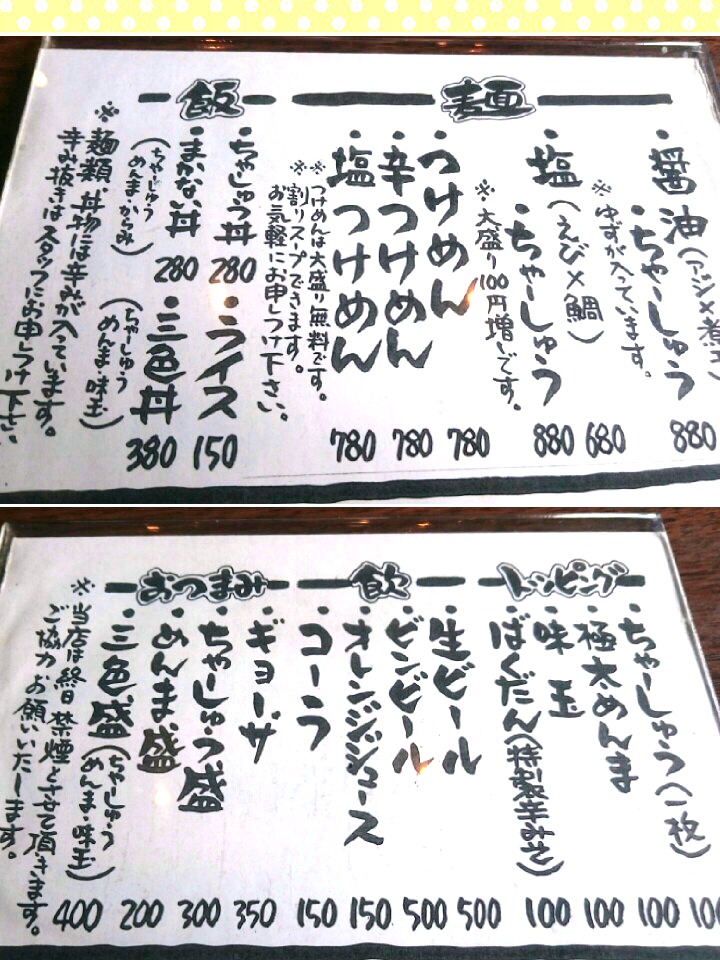 麺
・醤油(アジ×煮
・ちゃーしゅう 880
※ゆずが入っています。
・塩(えび×鯛) 680
・ちゃーしゅう 880
※大盛り100円増しです。
・つけめん 780
・辛つけめん 780
・塩つけめん 780
※つけめんは大盛り無料です。
※割りスープできます。
お気軽にお申しつけ下さい。
飯
・ちゃーしゅう丼 280
・ライス 150
・まかない丼 280
(ちゃーしゅう
めんま・からみ)
・三色丼 380
(ちゃーしゅう
めんま・味玉)
※麺類、丼物には辛みが入っています。
辛み抜きはスタッフにお申しつけ下さい
トッピング
・ちゃーしゅう(一枚) 100
・極太めんま 100
・味玉 100
・ばくだん(特製辛みそ) 100
飲
・生ビール 500
・ビンビール 500
・オレンジジュース 150
・コーラ 150
おつまみ
・ギョーザ 350
・ちゃーしゅう盛 300
・めんま盛 200
・三色盛(ちゃーしゅう
めんま・味玉) 400
※当店は終日禁煙とさせて頂きます。
ご協力お願いいたします。